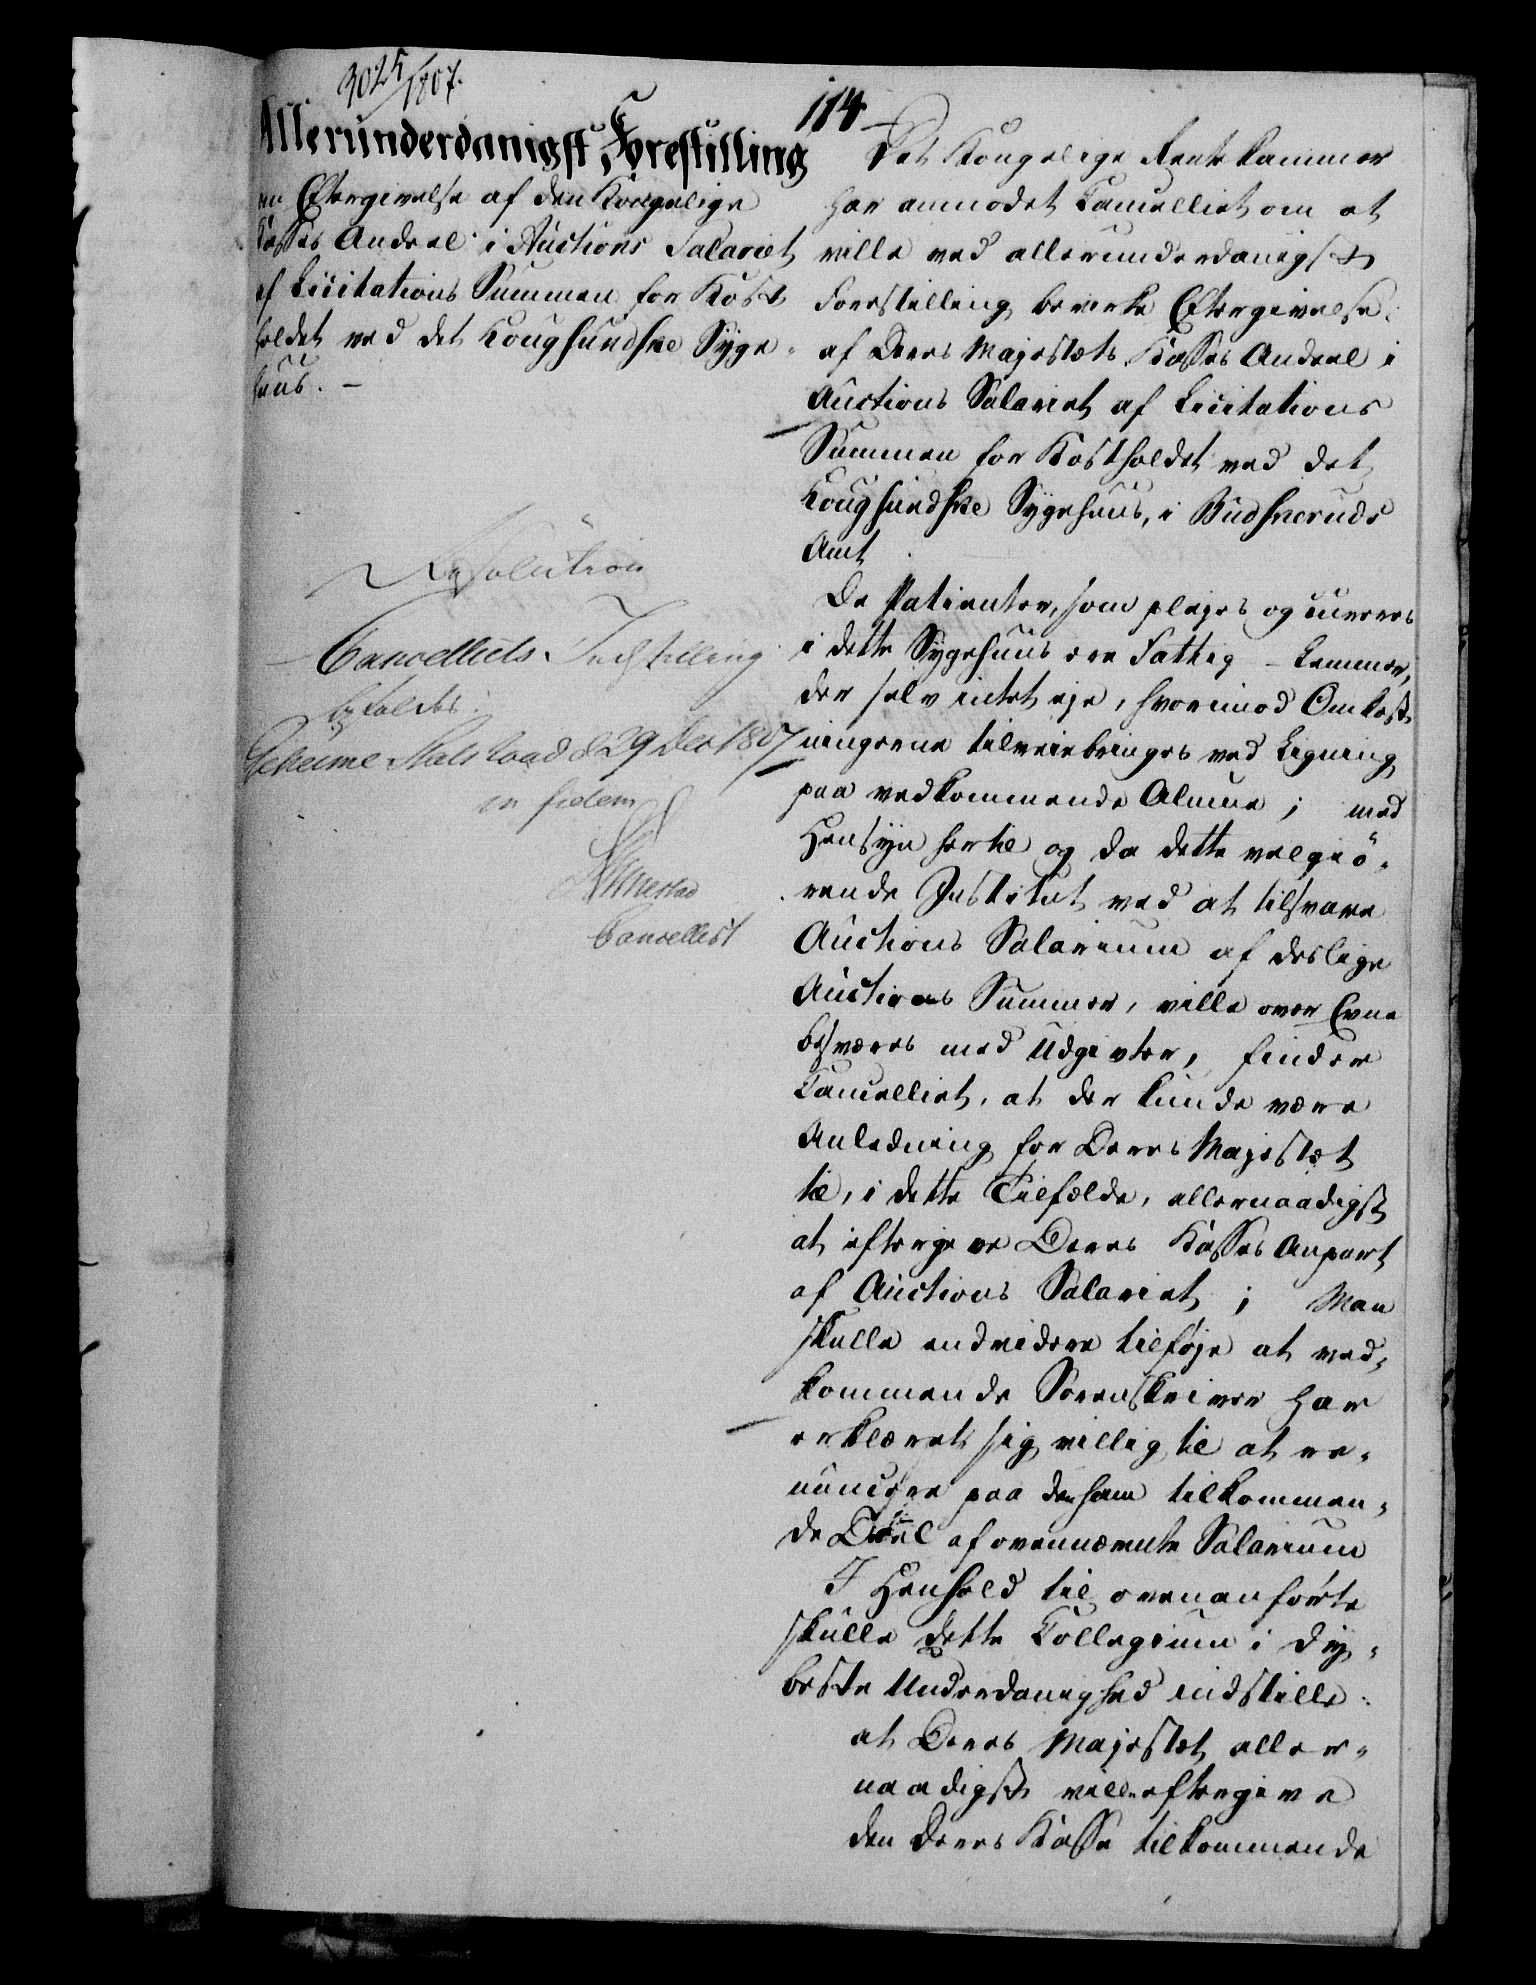 3025/1807.
114
Allerunderdanigst Forestilling
om Eftergivelse af den Kongelige
Kasses Andeel i Auctions Salariet
af Licitations Summen for Kost
holdet ved det Kougsundske Syge-
huus. –
Resolution
Cancelliets Indstilling
bifaldes.
Geheime Stats Raad d 29 Dec 1807
in fidem
Cancellist
Det Kongelige Rentekammer
har anmodet Cancelliet om at
ville ved allerunderdanigst
Forestilling bevirke Eftergivelse
af Deres Majestæts Kasses Andeel i
Auctions Salariet af Licitations
Summen for Kostholdet ved det
Kougsundske Sygehuus, i Budskeruds
Amt
De Patienter, som plejes og cureres
i dette Sygehuus ere Fattig-Lemmer,
der selv intet eje, hvorimod Omkost
ningerne tilveiebringes ved Ligning
paa vedkommende Almue; med
Hensyn hertil og da dette velgiö-
rende Institut ved at tilsvare
Auctions Salarium af deslige
Auctions Summer, ville over Evne
besværes med Udgivter, finder
Cancelliet, at der kunde være
Anledning for Deres Majestæt
til, i dette Tilfælde, allernaadigst
at eftergive Deres Kasses Anpart
af Auctions Salariet; Man
skulle endvidere tilføje at ved-
kommende Sorenskriver har
erklæret sig villig til at re-
nuncere paa den ham tilkommen-
de Deel af ovennævnte Salarium
I Henhold til ovenanførte
skulle dette Collegium i dy-
beste Underdanighed indstille:
at Deres Majestæt aller-
naadigst ville eftergive
den Deres Kasse tilkommende